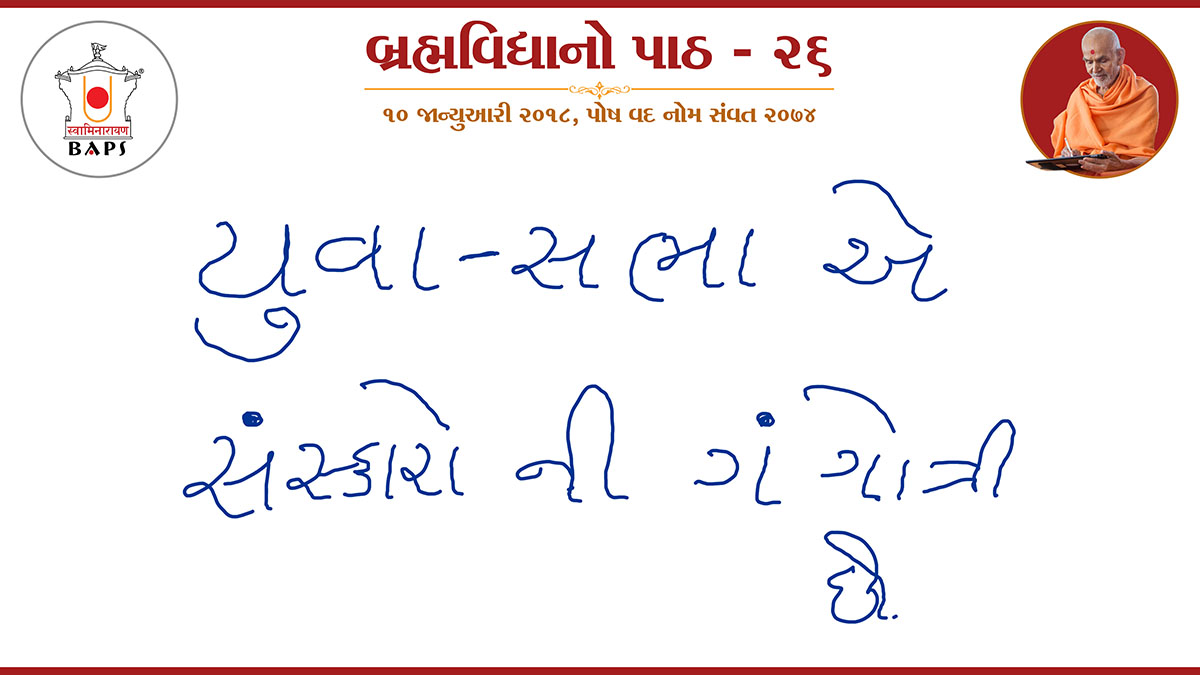 બ્રહ્મવિદ્યાનો પાઠ - ૨૬
૧૦ જાન્યુઆરી ૨૦૧૮, પોષ વદ નોમ સંવત ૨૦૭૪
स्वामिनारायण
®
BAPS
યુવા-સભા એ
સંસ્કારો ની ગંગોત્રી
છે.